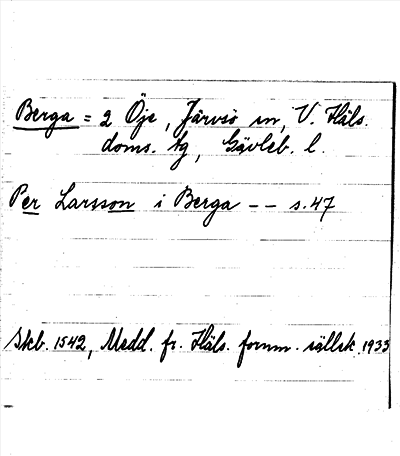 Berga = 2 Öje, Järvsö sn, V. Häls.
doms. tg, Gävleb. l.
Per Larsson i Berga -- s. 47
Skb. 1542, Medd. fr. Häls. fornm. sällsk. 1933